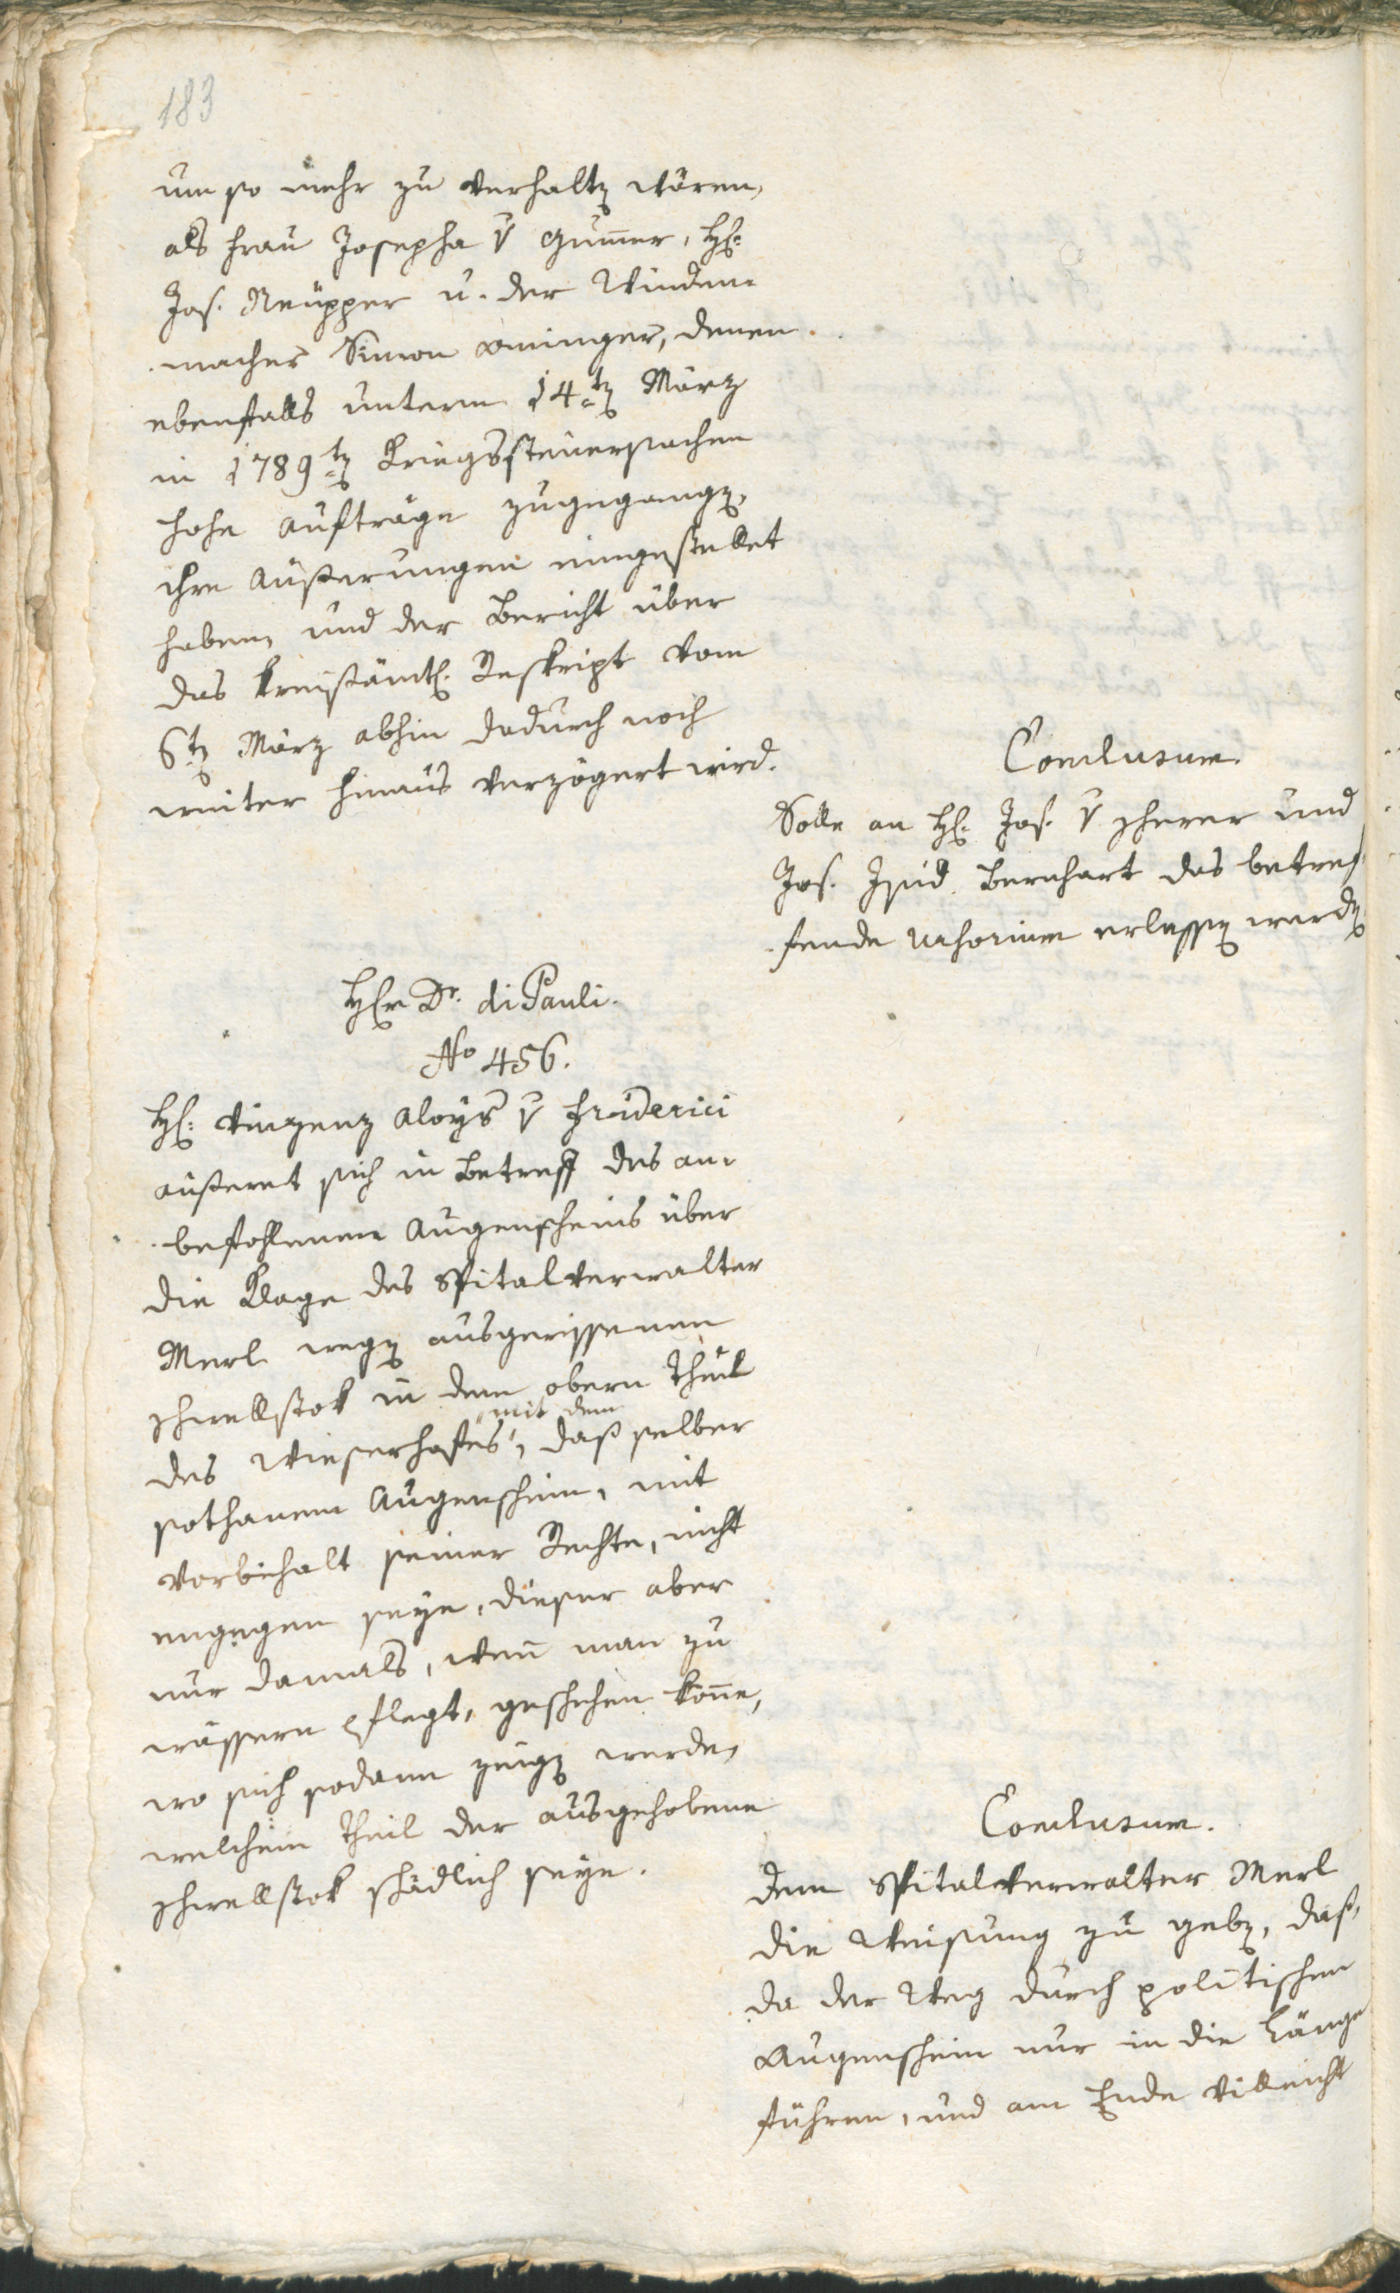 183
um so mehr zu verhalten wären,
als Frau Josepha v Gummer, H:
Jos. Neupper u. der Winden-
macher Simon Oeninger, denen
ebenfalls unterm 14ten März
in 1789ten Kriegssteuersachen
hohe Aufträge zugegangen,
ihre Äußerungen eingestellet
haben, und der Bericht über
das kreisämtl. Reskript vom
6ten März abhin dadurch noch
weiter hinaus verzögert wird.
Conclusum.
Solle an H: Jos. v Scherer und
Jos. Isid. Bernhart das betref-
fende Urhorium erlassen werden
Herr Dr. di Pauli.
No 456.
H: Vinzenz Aloys v Fräderici
äußeret sich in Betreff des an-
befohlenen Augenscheins über
die Klage des Spitalverwalter
Merl wegen ausgerissenen
Schwellstok in dem obern Theil
des Wieserhofes, mit dem, daß selber
sothanem Augenschein, mit
Vorbehalt seiner Rechte, nicht
engegen seye, dieser aber
nur damals, wenn man zu
wässern pflegt, geschehen könne,
wo sich sodann zeigen werde,
welchem Theil der ausgehobene
Schwellstok schädlich seye.
Conclusum.
Dem Spitalverwalter Merl
die Weisung zu geben, daß,
da der Weg durch politischen
Augenschein nur in die Länge
führen, und am Ende villeicht